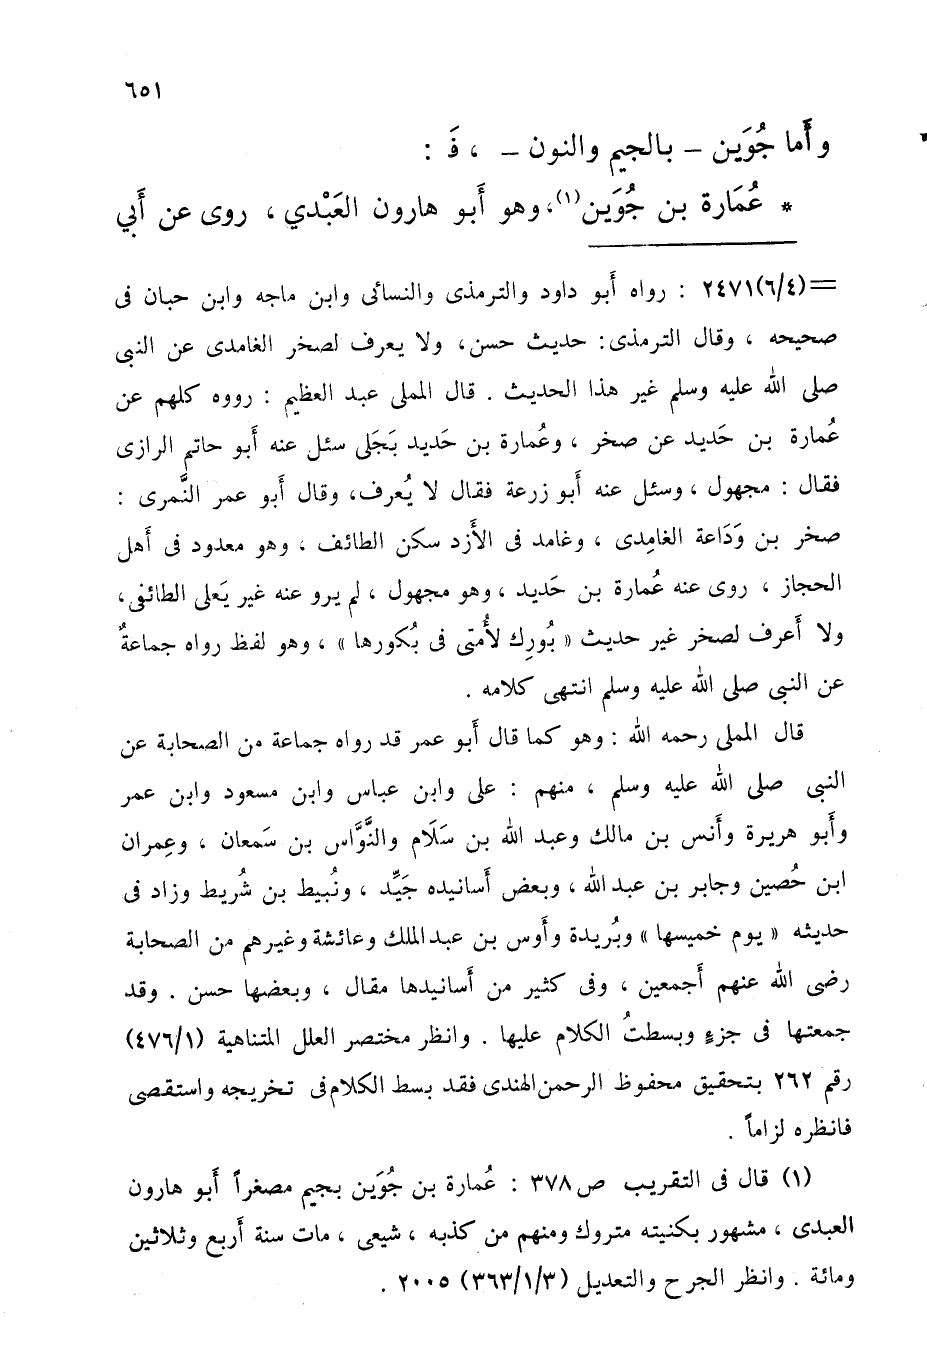 ٦٥١
وأَما جُوَين – بالجيم والنون – ، فَ :
* عُمَارة بن جُوَين(١)، وهو أَبو هارون العَبْدي ، روى عن أَبي
=(٦/٤)٢٤٧١ : رواه أَبو داود والترمذى والنسائى وابن ماجه وابن حبان فى
صحيحه ، وقال الترمذى: حديث حسن، ولا يعرف لصخر الغامدى عن النبى
صلى الله عليه وسلم غير هذا الحديث . قال المملى عبد العظيم : رووه كلهم عن
عُمارة بن حَديد عن صخر ، وعُمارة بن حَديد بَجَلى سئل عنه أَبو حاتم الرازى
فقال : مجهول ، وسئل عنه أَبو زرعة فقال لا يُعرف، وقال أَبو عمر النَّمرى :
صخر بن وَدَاعة الغامِدى ، وغامد فى الأَزد سكن الطائف ، وهو معدود فى أَهل
الحجاز ، روى عنه عُمارة بن حَديد ، وهو مجهول ، لم يرو عنه غير يَعلى الطائفى،
ولا أَعرف لصخر غير حديث « بُورِك لأُمتى فى بُكورها » ، وهو لفظ رواه جماعةٌ
عن النبى صلى الله عليه وسلم انتهى كلامه .
قال المملى رحمه الله : وهو كما قال أَبو عمر قد رواه جماعة من الصحابة عن
النبى صلى الله عليه وسلم ، منهم : على وابن عباس وابن مسعود وابن عمر
وأَبو هريرة وأَنس بن مالك وعبد الله بن سَلَام والنَّوَّاس بن سَمعان ، وعِمران
ابن حُصين وجابر بن عبد الله ، وبعض أَسانيده جَيِّد ، ونُبيط بن شُريط وزاد فى
حديثه « يوم خميسها » وبُريدة وأَوس بن عبد الملك وعائشة وغيرهم من الصحابة
رضى الله عنهم أَجمعين ، وفى كثير من أَسانيدها مقال ، وبعضها حسن . وقد
جمعتها فى جزءٍ وبسطتُ الكلام عليها . وانظر مختصر العلل المتناهية (٤٧٦/١)
رقم ٢٦٢ بتحقيق محفوظ الرحمن الهندى فقد بسط الكلام فى تخريجه واستقصى
فانظره لزاماً .
(١) قال فى التقريب ص ٣٧٨ : عُمارة بن جُوَين بجيم مصغراً أَبو هارون
العبدى ، مشهور بكنيته متروك ومنهم من كذبه ، شيعى ، مات سنة أَربع وثلاثين
ومائة . وانظر الجرح والتعديل (٣٦٣/١/٣) ٢٠٠٥ .